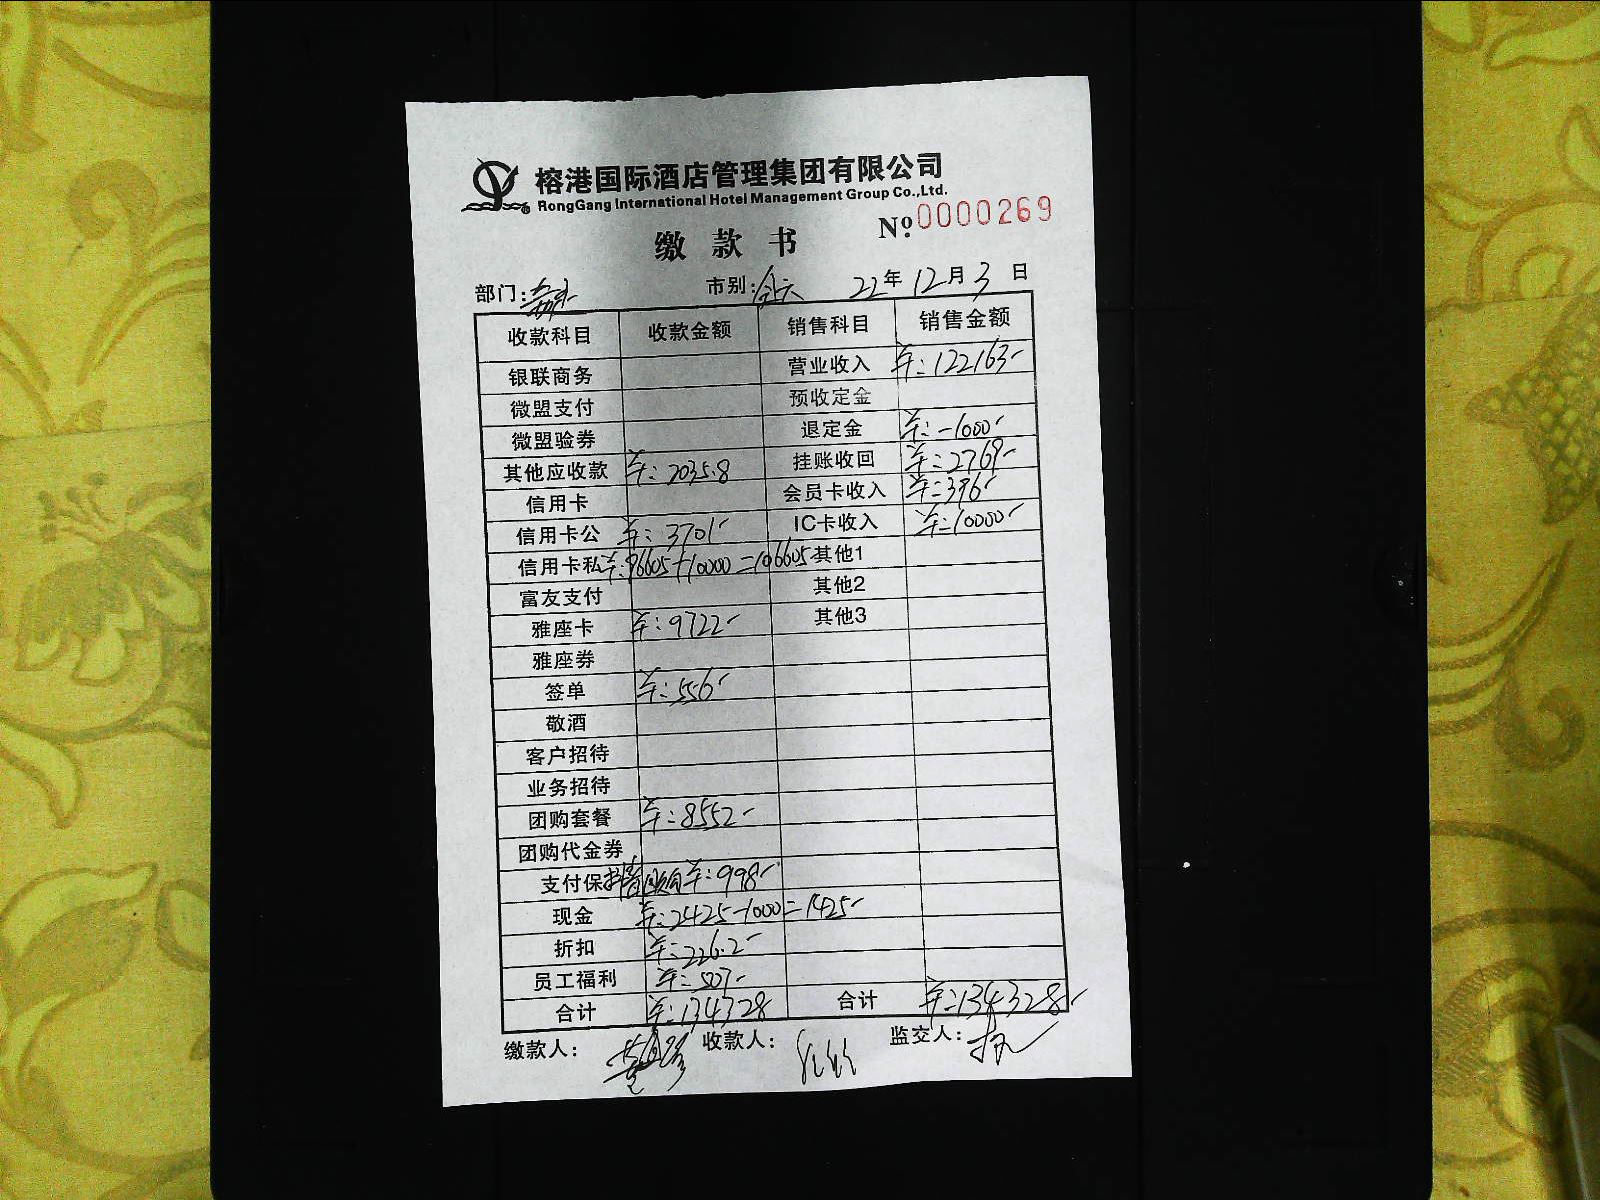 榕港国际酒店管理集团有限公司
RongGang International Hotel Management Group Co.,Ltd.
№ 0000269
缴款书
部门： 市别： 22年12月3日
收款科目 收款金额 销售科目 销售金额
银联商务 营业收入 羊:122163-
微盟支付 预收定金
微盟验券 退定金 羊:-1000-
其他应收款 羊:2035.8 挂账收回 羊:2769-
信用卡 会员卡收入 羊:396-
信用卡公 羊:3701- IC卡收入 羊:10000-
信用卡私 羊:96605+10000=106605 其他1
富友支付 其他2
雅座卡 羊:9722- 其他3
雅座券
签单 羊:556-
敬酒
客户招待
业务招待
团购套餐 羊:8552-
团购代金券
支付保 抖音 羊:998-
现金 羊:2425-1000=1425-
折扣 羊:226.2-
员工福利 羊:507-
合计 羊:134328 合计 羊:134328-
缴款人： 收款人： 监交人：